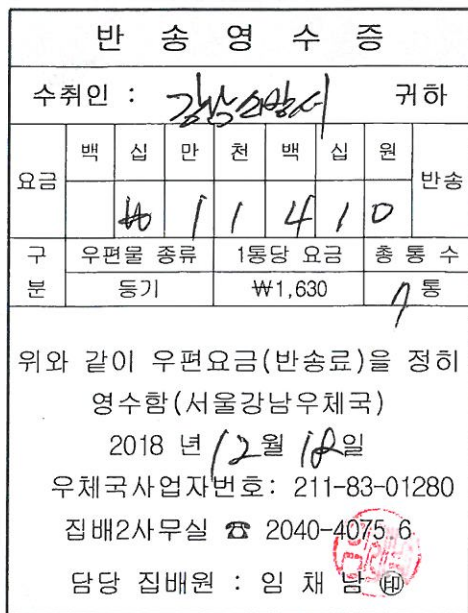 반송영수증
수취인 : 강남소방서 귀하
요금 백 십 만 천 백 십 원 반송
₩ 1 1 4 1 0
구분 우편물 종류 1통당 요금 총 통 수
등기 ₩1,630 7 통
위와 같이 우편요금(반송료)을 정히
영수함(서울강남우체국)
2018 년 12월 18일
우체국사업자번호: 211-83-01280
집배2사무실 ☎ 2040-4075 6
담당 집배원 : 임 채 남 ㊞